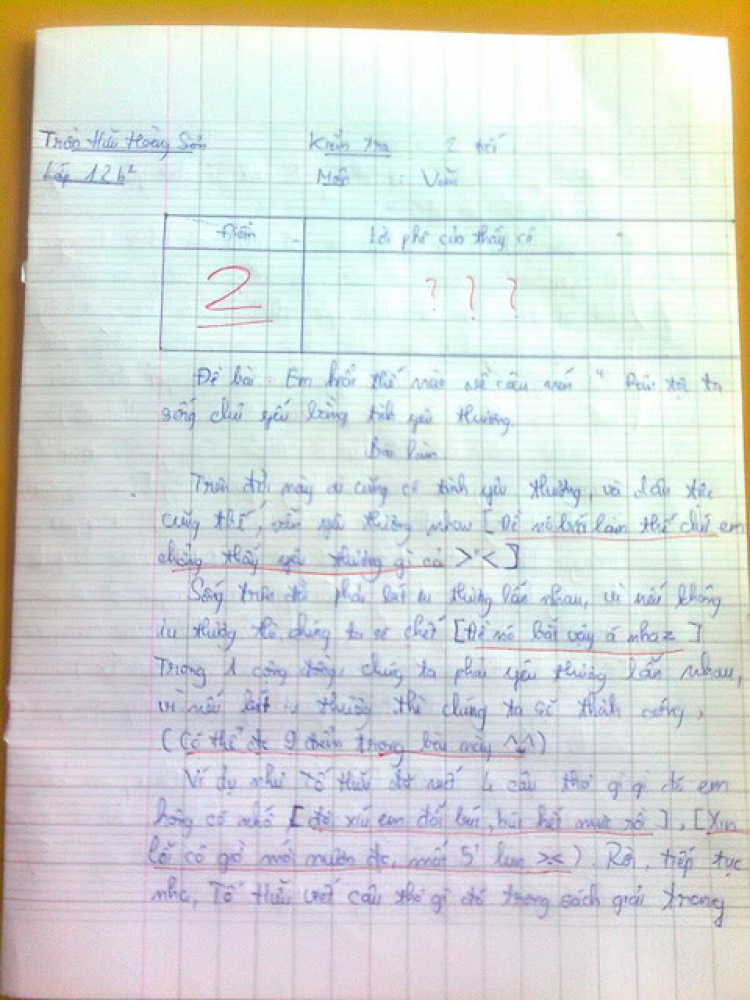 Trần Hữu Hoàng Sơn Kiểm tra 2 tiết
Lớp 12b² Môn : Văn
Điểm Lời phê của thầy cô
2 ? ? ?
Đề bài : Em hiểu thế nào về câu nói " Dân tộc ta
sống chủ yếu bằng tình yêu thương.
Bài làm
Trên đời này ai cũng có tình yêu thương, và dân tộc
cũng thế, vẫn yêu thương nhau [ Đề nó bảo làm thế chứ em
chẳng thấy yêu thương gì cả >"< ]
Sống trên đời phải biết iu thương lẫn nhau, vì nếu không
iu thương thì chúng ta sẽ chết [ Đề nó bắt vậy á nhaz ]
Trong 1 cộng đồng, chúng ta phải yêu thương lẫn nhau,
vì nếu biết iu thương thì chúng ta sẽ thành công,
( Có thể đc 9 điểm trong bài này ^^ )
Ví dụ như Tố Hữu đã viết 4 câu thơ gì gì đó em
hông có nhớ [ đợi xíu em đổi bút, bút hết mực rồi ], [ Xin
lỗi cô giờ mới mượn đc, mất 5' lun >< ). Rồi, tiếp tục
nhc, Tố Hữu viết câu thơ gì đó trong sách giải trong